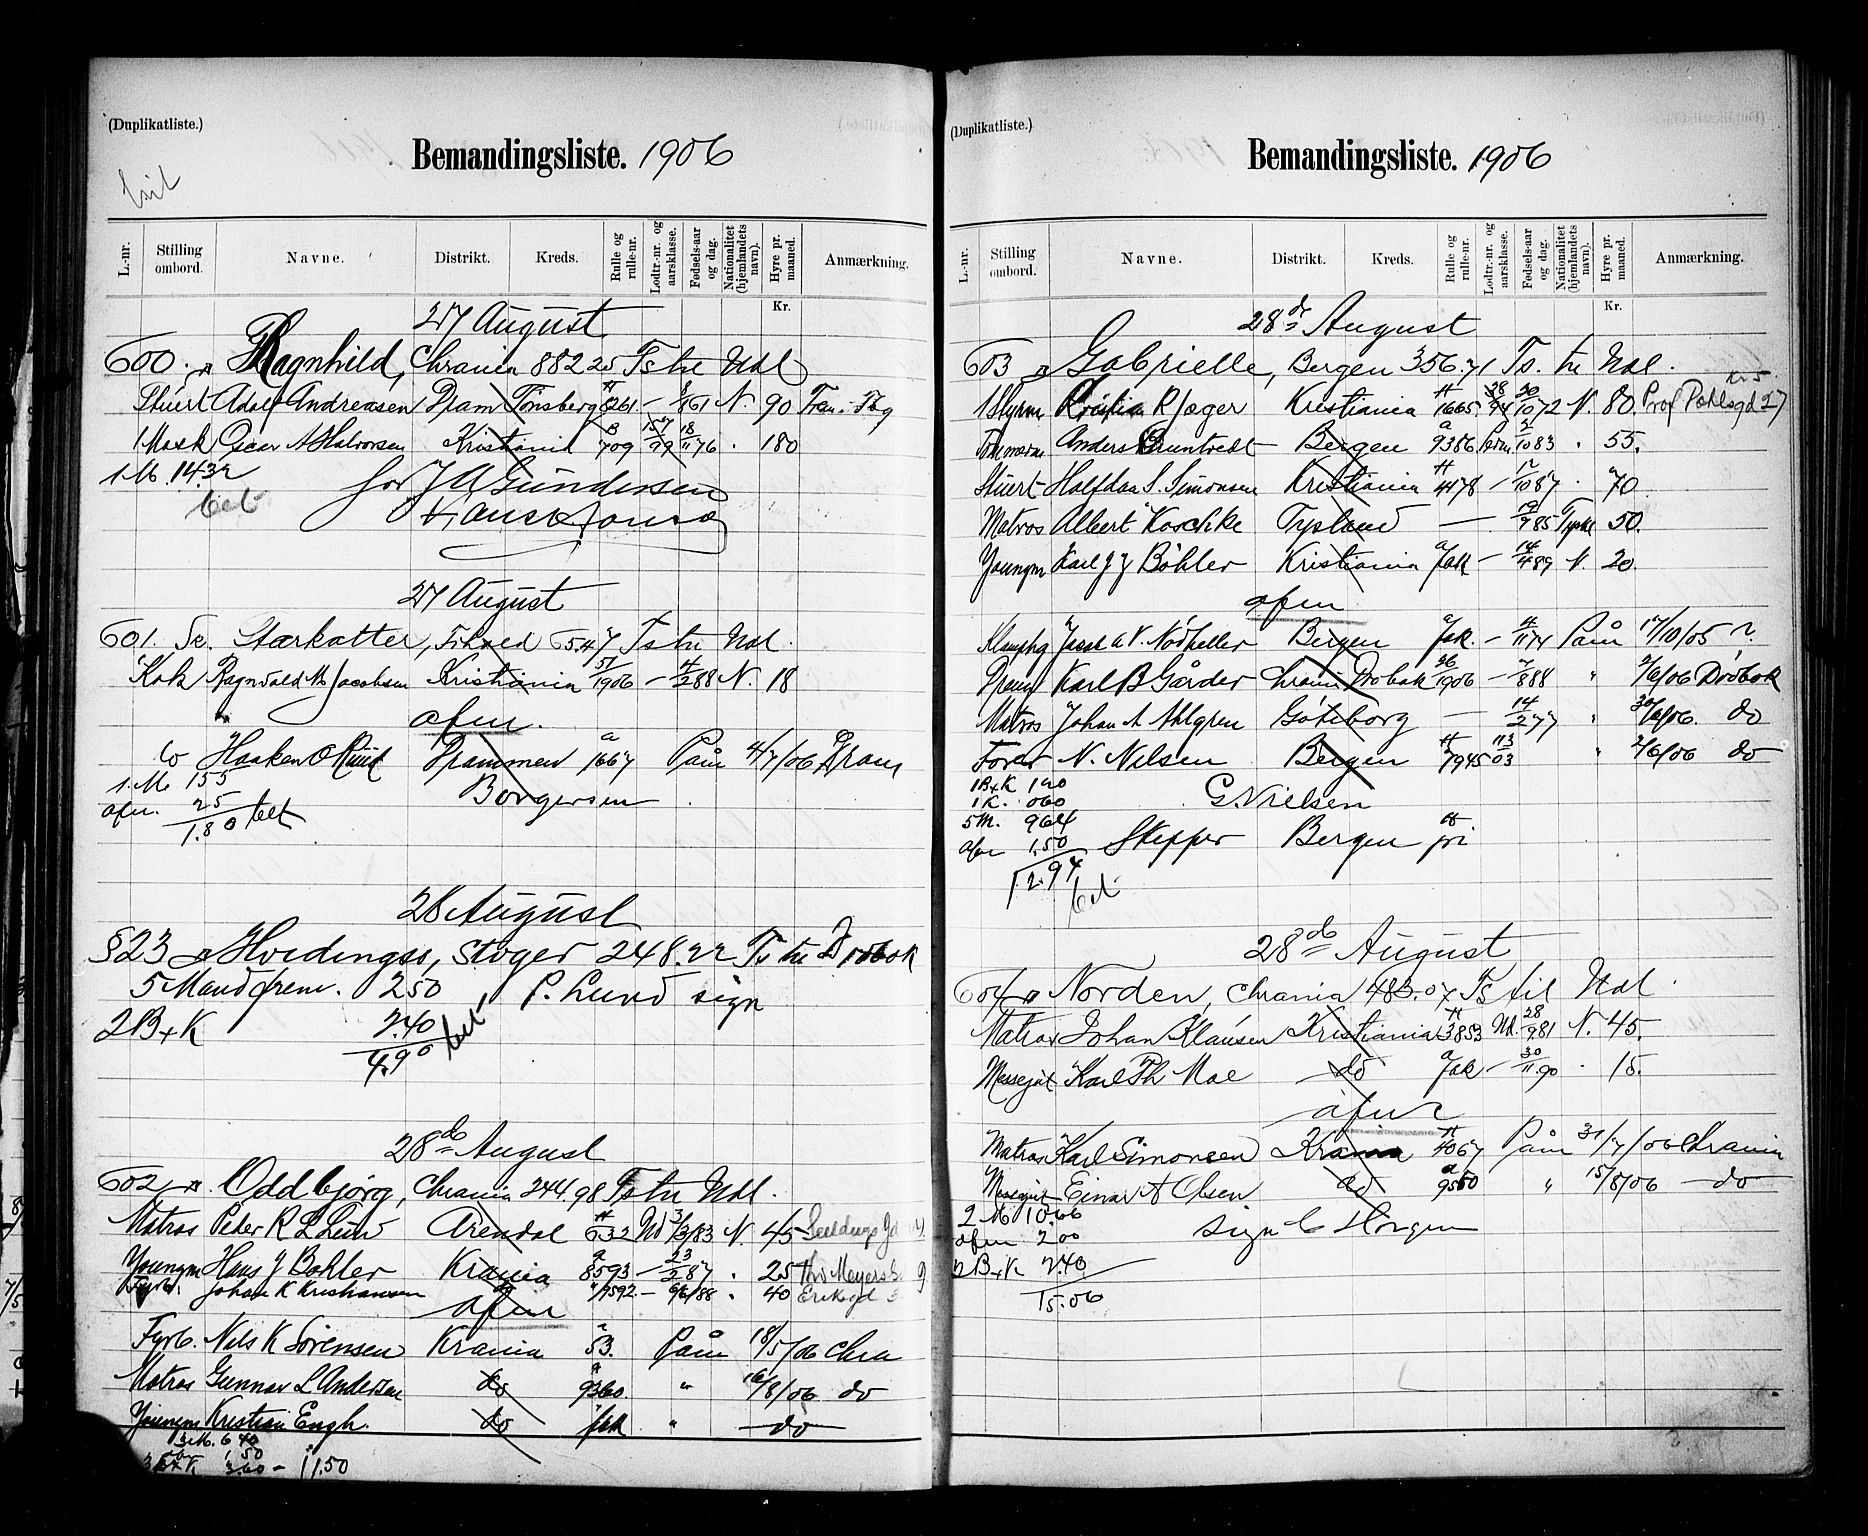 (Duplikatliste.)
Bemandingsliste. 1906
L.-nr. Stilling ombord. Navne. Distrikt. Kreds. Rulle og rulle-nr. Lodtr.-nr. og aarsklasse. Fødsels-aar og dag. Nationalitet (hjemlandets navn). Hyre pr. maaned. Anmærkning.
Kr.
27 August
600. Ragnhild, Chrania 882 25 Ts tr Udl
Stuert Adolf Andreasen Dram Tönsberg 61 N. 90
1 Mask Oscar A Halvorsen Kristiania 709 157/99 18/11 76 180
1 M. 14.32
bet
for J A Gundersen
27 August
601. Se. Starkatter, 65.47 Ts tr Udl.
Kok Ragnvald M Jacobsen Kristiania 51/1906 – 4/2 88 N. 18
afm.
Haaken O Ruud Drammen 1667 Påm 4/7/06 Dram
1. M 155
afm. 25
1.80 bet
Borgersen
28 August
§23 Hvidingsö, Stvger 248.22 Ts tr Dröbak
5 Mand frem. 250 P. Lund sign
2 B + K 2.40
4.90 bet
28de August
602 Oddbjörg, Chrania 244.98 Ts tr Udl.
Matros Peder R L Lund Arendal 632 Ud 3/3/83 N. 45
Youngm Hans J Bohler Krania 8593 – 23/2 87 25 Thv Meyers 9
Fyrb. Johan K Kristiansen 7592 – 9/6/88 40 Eriksgd 3
afm
Fyrb. Nils K Sörensen Krania 53. Påm 18/5/06 Chra
Matros Gunnar L Andersen do 9360. " 16/8/06 do
Youngm Kristian Engh. do fak " do
3 M. 6 40
afm 1 50
3 B+K 3.60 – 11.50
(Duplikatliste.)
Bemandingsliste. 1906
L.-nr. Stilling ombord. Navne. Distrikt. Kreds. Rulle og rulle-nr. Lodtr.-nr. og aarsklasse. Fødsels-aar og dag. Nationalitet (hjemlandets navn). Hyre pr. maaned. Anmærkning.
Kr.
28de August
603 Gabrielle, Bergen 356.71 Ts. tr Udl.
1 Styrm Kristian R Jæger Kristiania 1665 28/94 20/10 72 N. 80. Prof Dahlsgd 27
Tömmerm Anders Bruntvedt Bergen 9386 3/10 83 55.
Stuert Halfdan S. Simonsen Kristiania 4178 – 12/10 87 70
Matros Albert Koschke Tyskland — 19/7 85 Tyske 50.
Youngm Karl J J Böhler Kristiania fak – 14/4 89 N. 20.
afm
Jacob A V. Nödtveller Bergen fak. – 4/11 74 Påm 17/10/05
Karl B Gårder Chrania Dröbak 26/1906 – 7/8 88 " 2/6/06 Dröbak
Matros Johan A Ahlgren Göteborg — 14/2 77 " 30/6/06. do
N. Nilsen Bergen 7945 113/03 " 2/6/06 do
1 B+K 120
1 K. 060
5 M. 964
afm 1.50
12.94
bet
G. Nielsen
Skepper Bergen fri
28de August
604 Norden, Chrania 483.07 Ts til Udl.
Matros Johan Klausen Kristiania 3853 Ud. 28/9 81 N. 45.
Messegut Karl Th Moe do fak – 30/11 90 15.
afm
Matros Karl Simonsen Krania 4067 Påm 31/7/06 Chrania
Messegut Einar A Olsen do 9550 " 15/8/06 do
2 M 10.66
afm 2.00
2 B+K 2.40
15.06
sign C Horgen